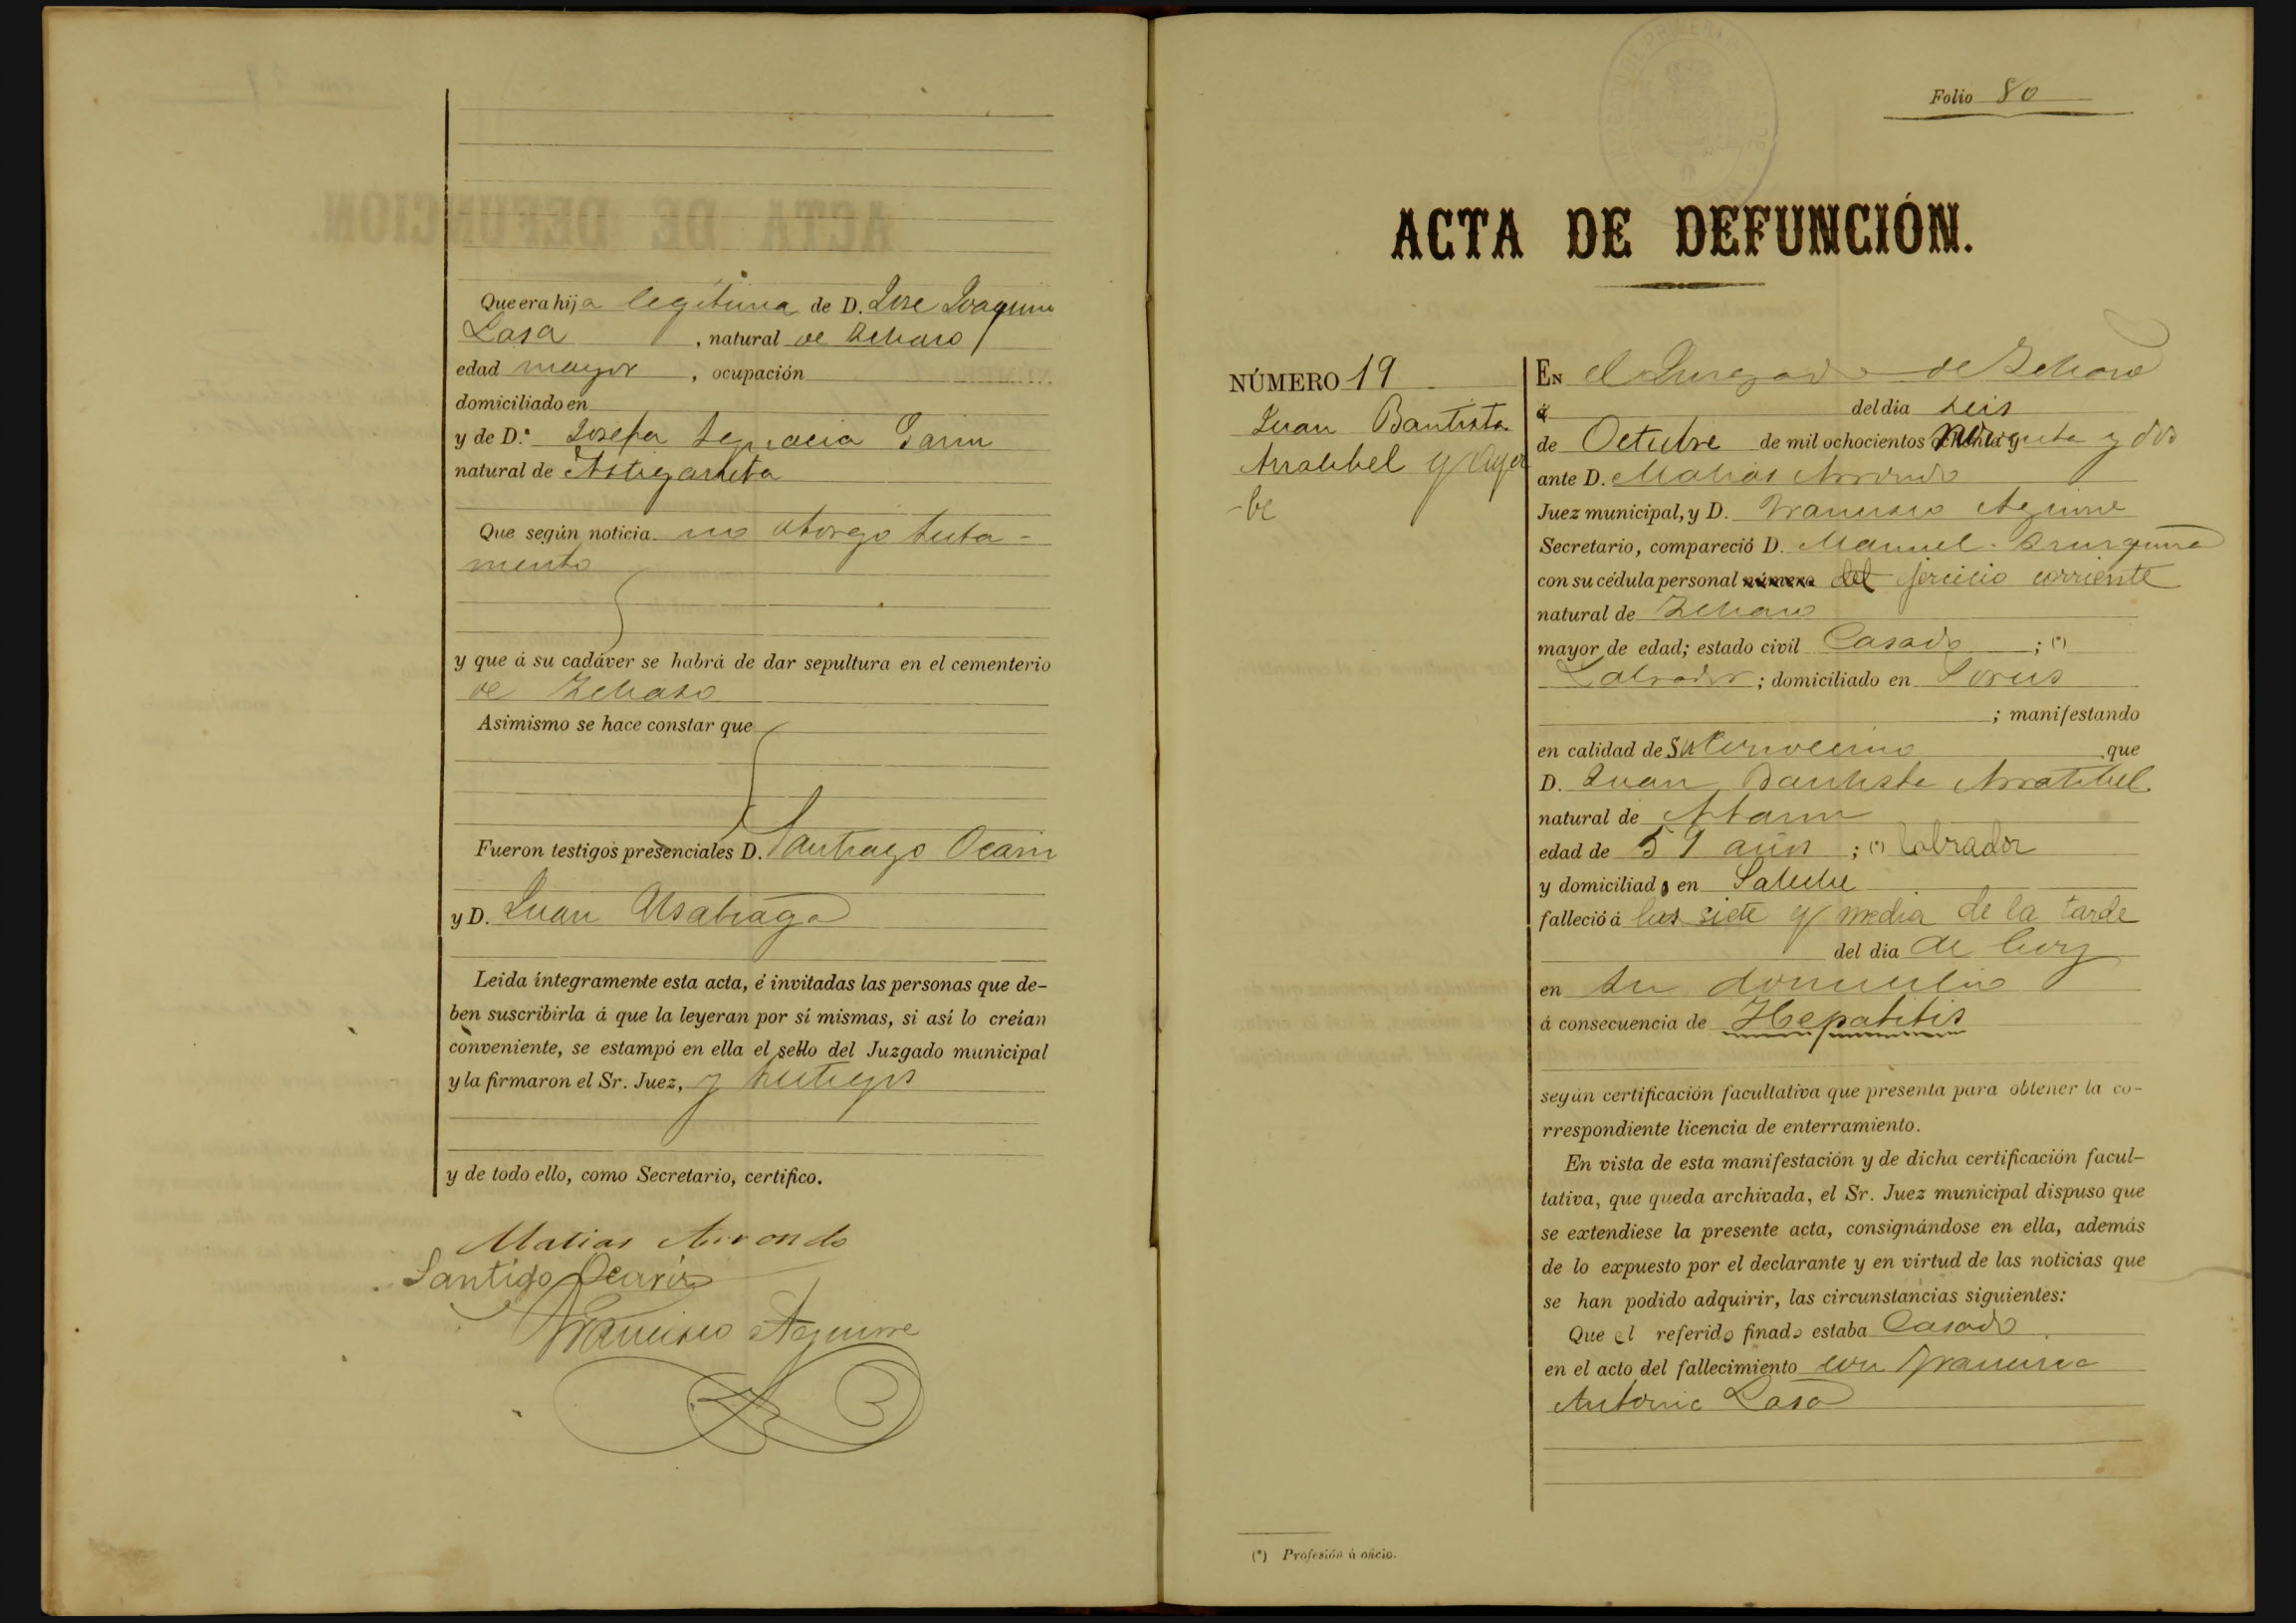 Que era hija legitima de D. Jose Joaquin
Lasa, natural de
edad mayor, ocupación
domiciliado en
y de D.ª Josefa Ignacia
natural de Astigarreta
Que según noticia no otorgó testa-
mento
y que á su cadáver se habrá de dar sepultura en el cementerio
de
Asimismo se hace constar que
Fueron testigos presenciales D. Santiago Ocariz
y D. Juan
Leida íntegramente esta acta, é invitadas las personas que de-
ben suscribirla á que la leyeran por sí mismas, si así lo creían
conveniente, se estampó en ella el sello del Juzgado municipal
y la firmaron el Sr. Juez, y testigos
y de todo ello, como Secretario, certifico.
Matias Arrondo
Santigo Ocariz
Francisco Aguirre
Folio 80
ACTA DE DEFUNCIÓN.
NÚMERO 19
Juan Bautista
Arratibel y Ayer
-be
EN el Juzgado de
á del dia seis
de Octubre de mil ochocientos noventa y dos
ante D. Matias Arrondo
Juez municipal, y D. Francisco Aguirre
Secretario, compareció D. Manuel
con su cédula personal número del corriente
natural de
mayor de edad; estado civil Casado; (*)
Labrador; domiciliado en
; manifestando
en calidad de que
D. Juan Bautista Arratibel
natural de Ataun
edad de años; (*) labrador
y domiciliado en
falleció á las siete y media de la tarde
del dia de hoy
en su domicilio
á consecuencia de Hepatitis
según certificación facultativa que presenta para obtener la co-
rrespondiente licencia de enterramiento.
En vista de esta manifestación y de dicha certificación facul-
tativa, que queda archivada, el Sr. Juez municipal dispuso que
se extendiese la presente acta, consignándose en ella, además
de lo expuesto por el declarante y en virtud de las noticias que
se han podido adquirir, las circunstancias siguientes:
Que el referido finado estaba Casado
en el acto del fallecimiento con Francisca
Antonia Lasa
(*) Profesión ú oficio.